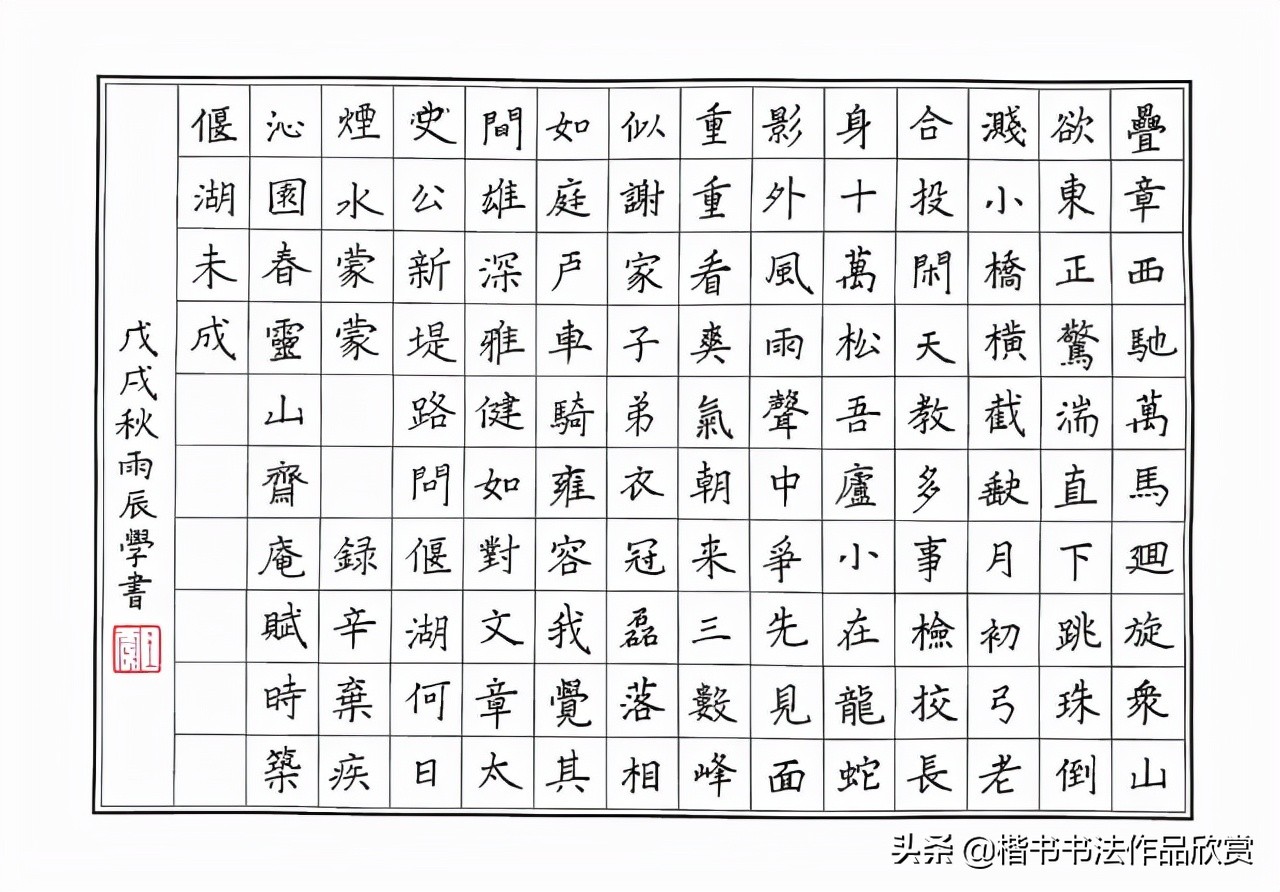 疊章西馳萬馬廻旋衆山
欲東正驚湍直下跳珠倒
濺小橋橫截缺月初弓老
合投閑天教多事檢挍長
身十萬松吾廬小在龍蛇
影外風雨聲中爭先見面
重重看爽氣朝来三數峰
似謝家子弟衣冠磊落相
如庭戶車騎雍容我覺其
間雄深雅健如對文章太
史公新堤路問偃湖何日
煙水蒙蒙 録辛棄疾
沁園春靈山齋庵賦時築
偃湖未成
戊戌秋雨辰學書
头条 @楷书书法作品欣赏